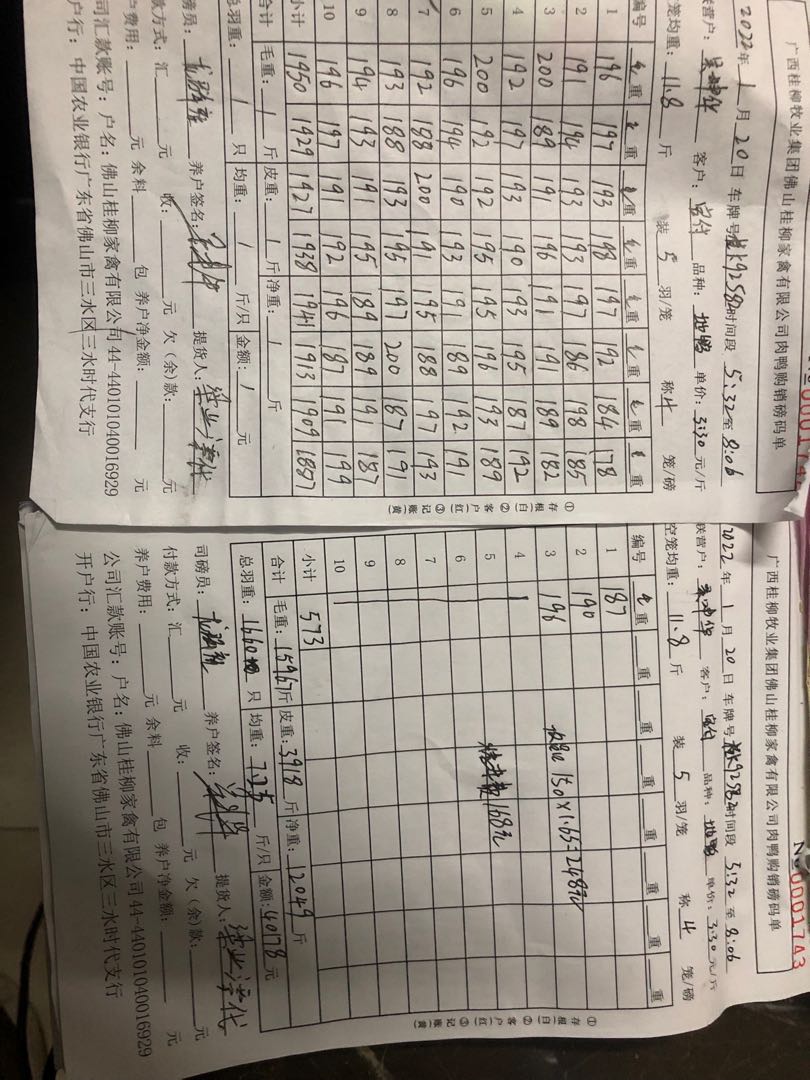 广西桂柳牧业集团佛山桂柳家禽有限公司肉鸭购销磅码单
2022年 1 月 20 日 车牌号 K92582 时间段 5:32 至 8:06
联营户: 客户: 品种: 单价: 3.30 元/斤
空笼均重: 11.8 斤 装 5 羽/笼 称 4 笼/磅
编号 毛重 毛重 毛重 毛重 毛重 毛重 毛重 毛重
1 196 197 193 198 197 192 184 178
2 191 194 193 193 197 186 198 185
3 200 189 191 196 191 191 189 182
4 192 197 193 190 193 195 187 192
5 200 192 192 195 195 196 193 189
6 196 194 190 193 191 189 192 191
7 192 188 200 191 195 188 197 193
8 193 188 193 195 197 200 187 191
9 194 193 191 195 189 189 191 187
10 196 197 191 192 196 187 191 199
小计 1950 1929 1927 1938 1941 1913 1909 1887
合计 毛重: / 斤 皮重: / 斤 净重: / 斤
总羽重: / 只 均重: / 斤/只 金额: / 元
司磅员: 养户签名: 提货人:
付款方式: 汇 元 收: 元 欠(余)款: 元
养户费用: 元 余料 包 养户净金额: 元
公司汇款账号: 户名: 佛山桂柳家禽有限公司 44-440101040016929
开户行: 中国农业银行广东省佛山市三水区三水时代支行
①存根(白) ②客户(红) ③记账(黄)
No 00017A3
广西桂柳牧业集团佛山桂柳家禽有限公司肉鸭购销磅码单
2022年 1 月 20 日 车牌号 K92582 时间段 5:32 至 8:06
联营户: 客户: 品种: 单价: 3.30 元/斤
空笼均重: 11.8 斤 装 5 羽/笼 称 4 笼/磅
编号 毛重 重 重 重 重 重 重 重
1 187
2 190
3 196
150×1.65=248元
4
5
168元
6
7
8
9
10
小计 573
合计 毛重: 15967 斤 皮重: 3918 斤 净重: 12049 斤
总羽重: 1660 只 均重: 斤/只 金额: 40178 元
司磅员: 养户签名: 提货人:
付款方式: 汇 元 收: 元 欠(余)款: 元
养户费用: 元 余料 包 养户净金额: 元
公司汇款账号: 户名: 佛山桂柳家禽有限公司 44-440101040016929
开户行: 中国农业银行广东省佛山市三水区三水时代支行
①存根(白) ②客户(红) ③记账(黄)